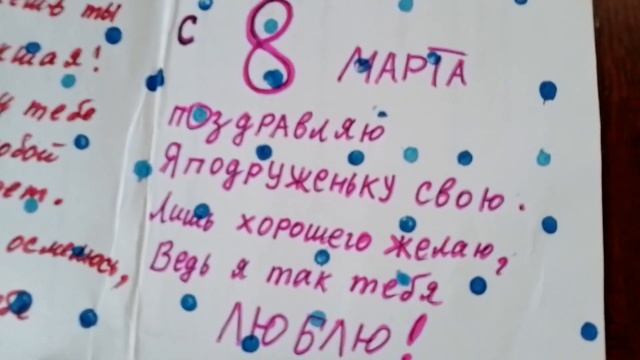 ты
шая!
тебе
обой
осмелюсь,
С 8 МАРТА
ПОЗДРАВЛЯЮ
Я подруженьку свою.
Лишь хорошего желаю,
Ведь я так тебя
ЛЮБЛЮ!